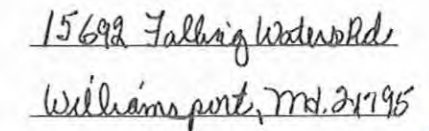 15692 Falling Waters Rd.
Williamsport, Md. 21795